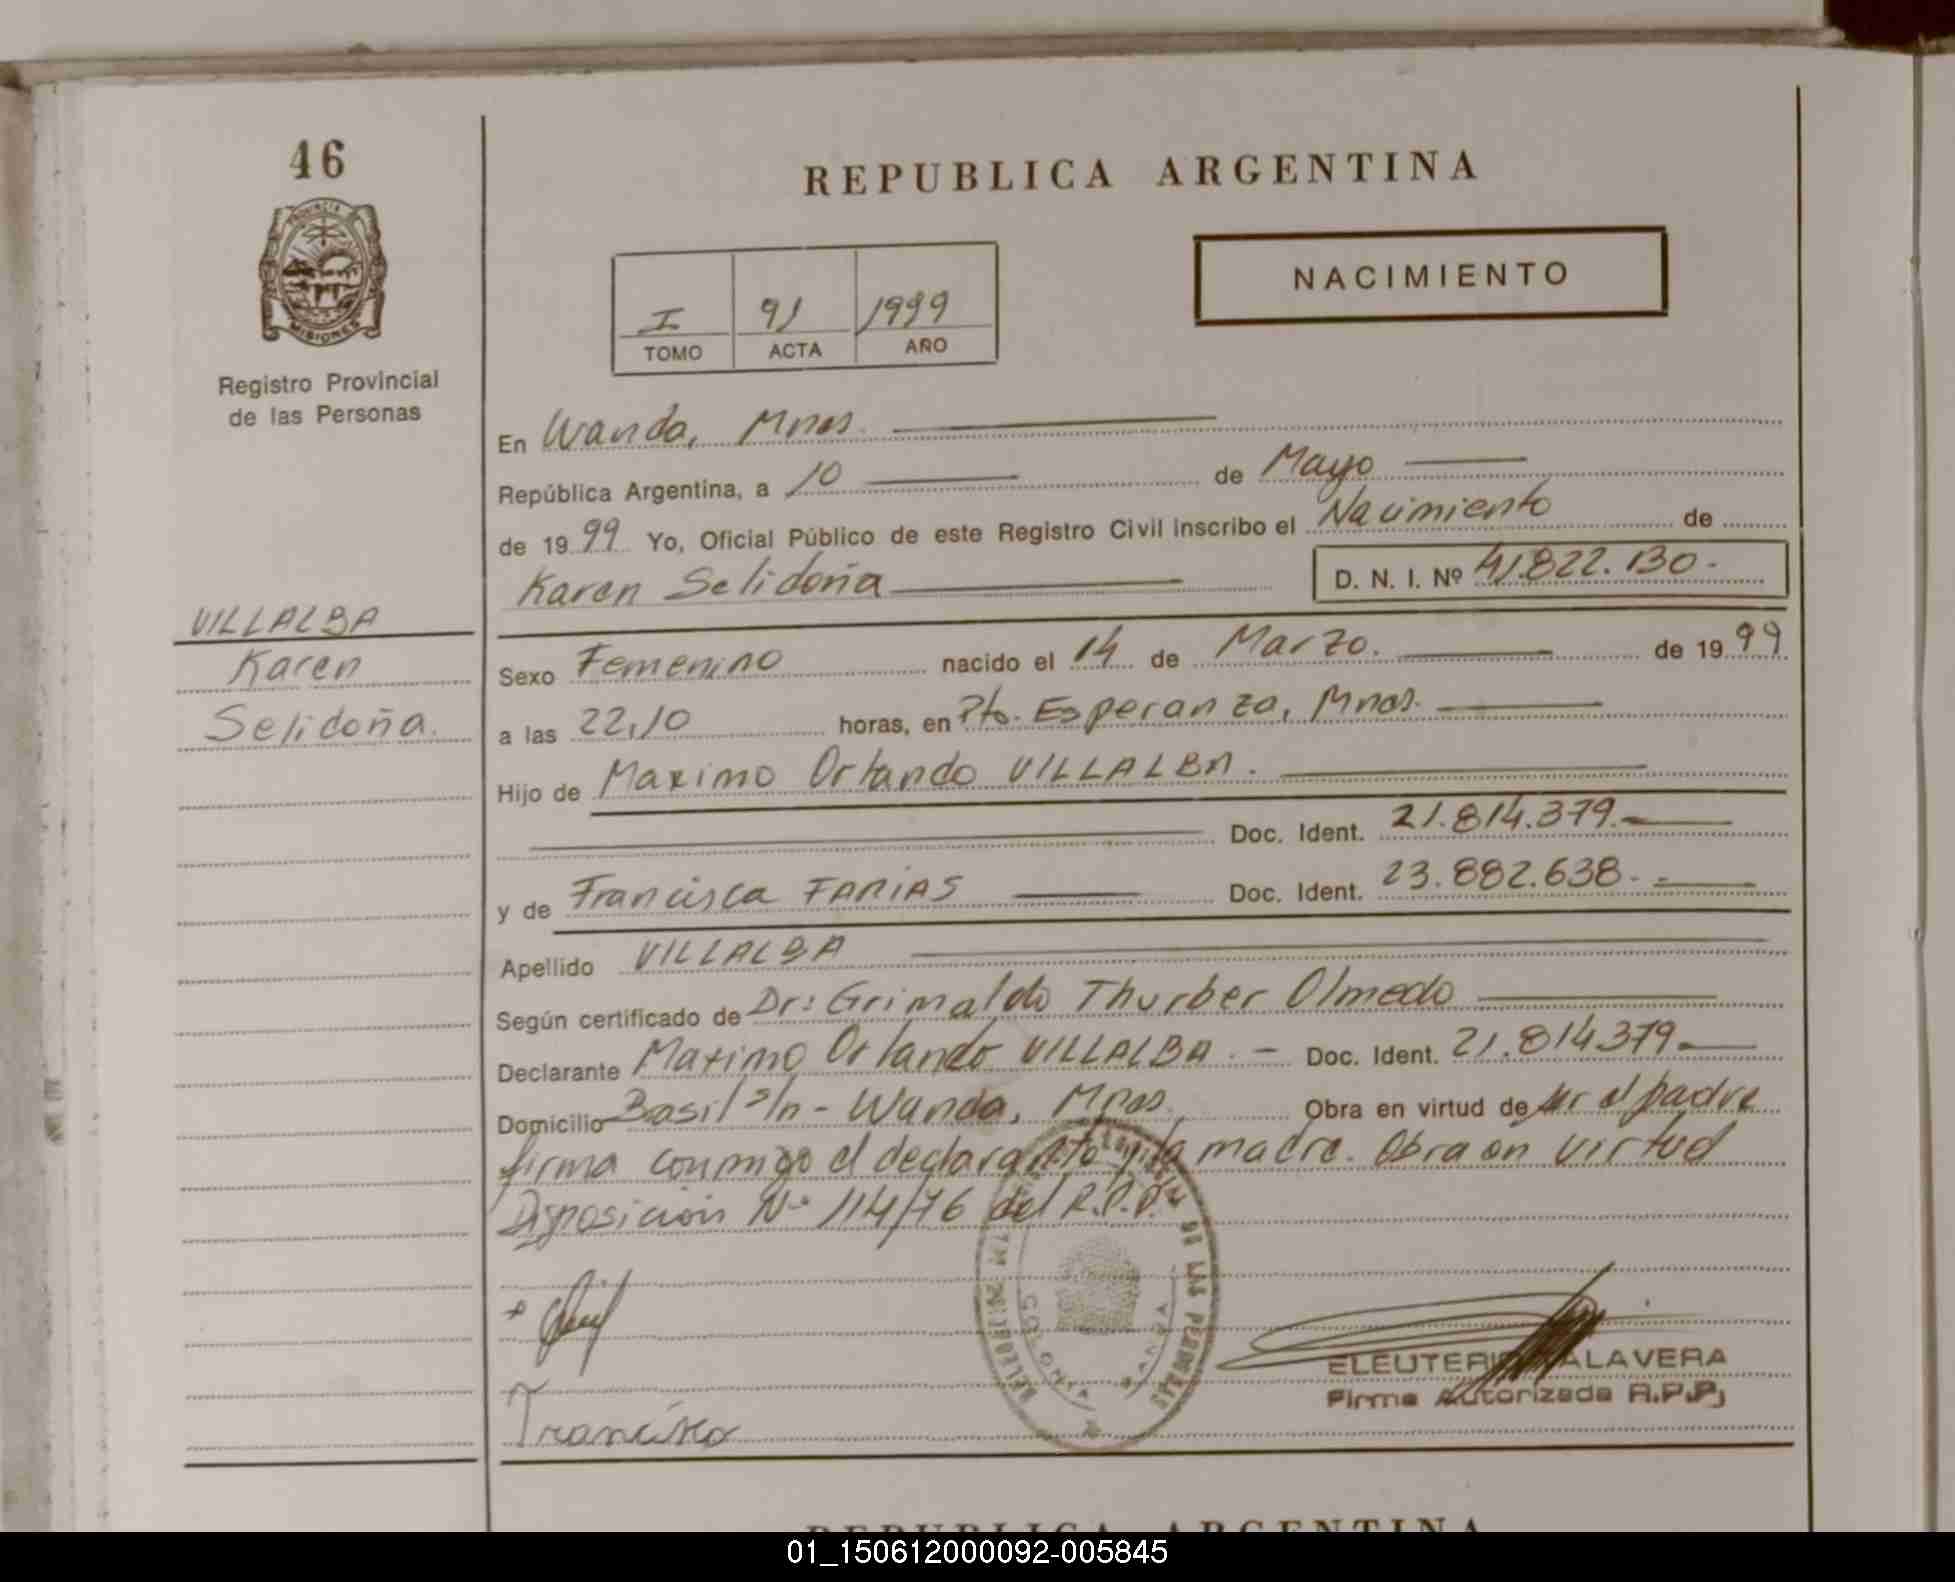 46
PROVINCIA DE
MISIONES
Registro Provincial
de las Personas
REPUBLICA ARGENTINA
NACIMIENTO
I 91 1999
TOMO ACTA AÑO
En Wanda, Mnes.
República Argentina, a 10 de Mayo
de 1999 Yo, Oficial Público de este Registro Civil inscribo el Nacimiento de
Karen Selidoña D. N. I. Nº 41.822.130.-
VILLALBA
Karen
Selidoña.
Sexo Femenino nacido el 14 de Marzo. de 1999
a las 22,10 horas, en Pto. Esperanza, Mnes.
Hijo de Maximo Orlando VILLALBA.
Doc. Ident. 21.814.379.-
y de Francisca FARIAS Doc. Ident. 23.882.638.-
Apellido VILLALBA
Según certificado de Dr: Grimaldo Thurber Olmedo
Declarante Maximo Orlando VILLALBA.- Doc. Ident. 21.814379.-
Domicilio Basil s/n - Wanda, Mnes. Obra en virtud de ser el padre
firma conmigo el declarante y la madre. Obra en virtud
Disposición Nº 114/76 del R.P.P.
DE LAS PERSONAS
COLONIA WANDA
ELEUTERIO TALAVERA
Firma Autorizada R.P.P.
Francisca
REPUBLICA ARGENTINA
01_150612000092-005845